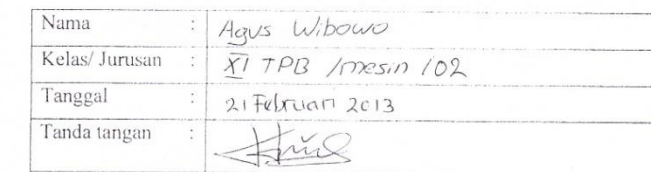 Nama : Agus Wibowo
Kelas/ Jurusan : XI TPB /mesin /02
Tanggal : 21 Februari 2013
Tanda tangan :